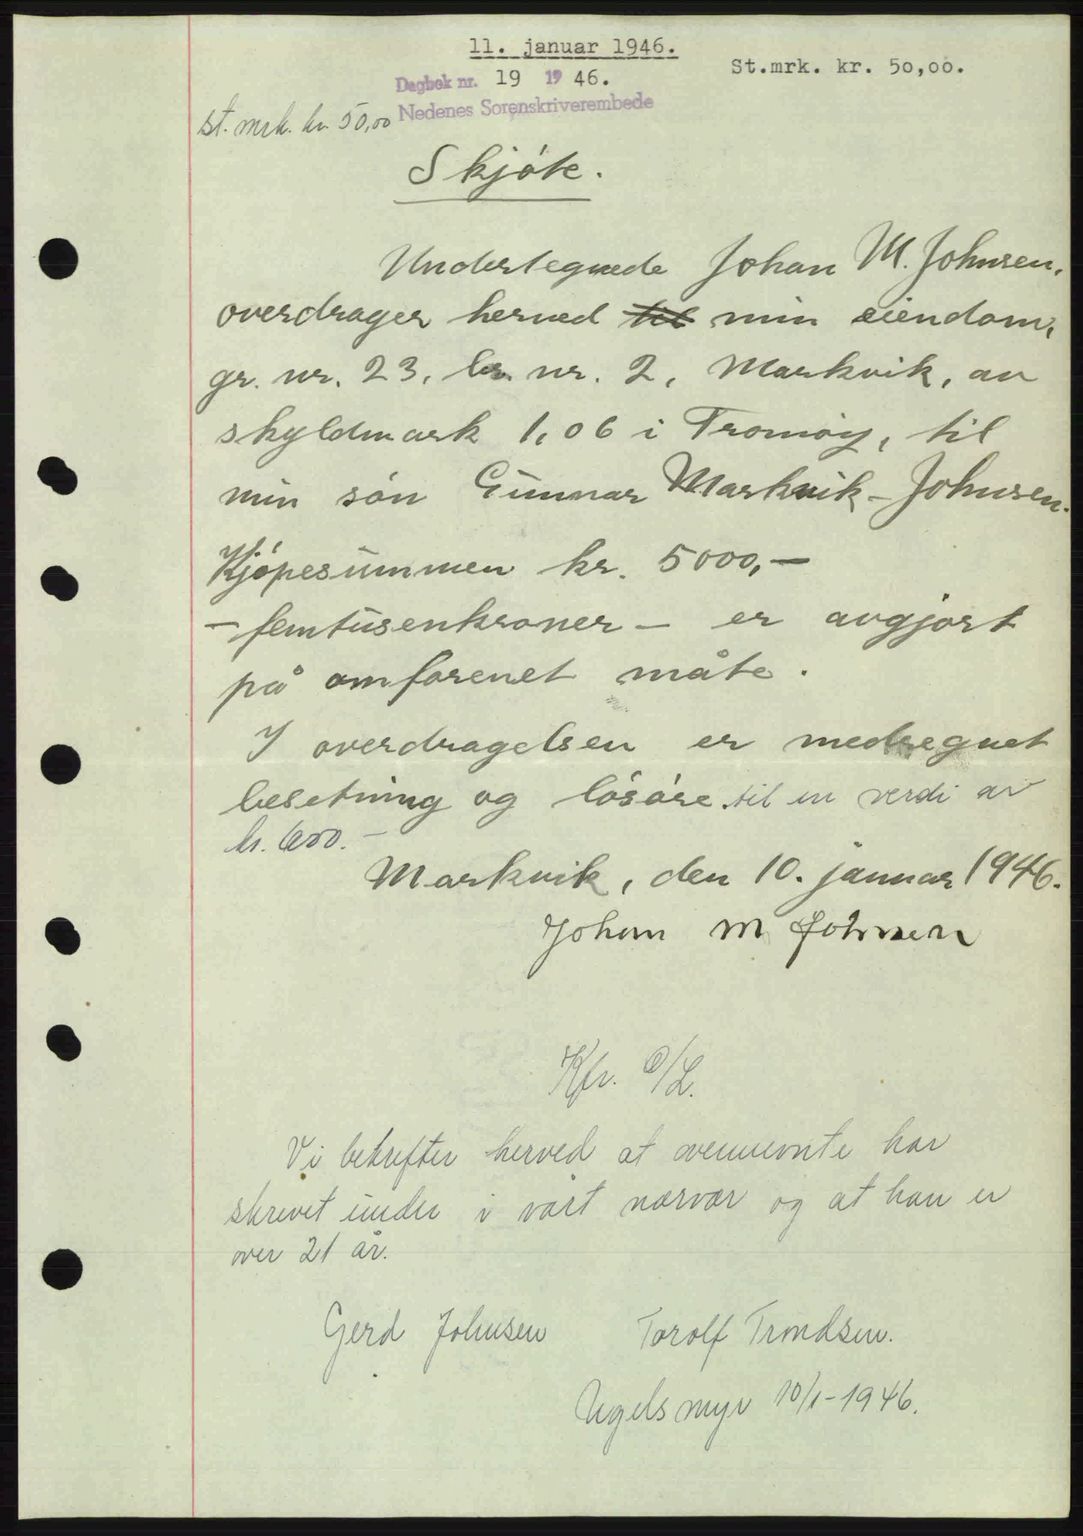 11. januar 1946.
St.mrk. kr. 50,00.
Dagbok nr. 19 1946.
Nedenes Sorenskriverembede
st. mrk. kr. 50,00
Skjóte.
Undertegnede Johan M. Johnsen,
overdrager herved til min eiendom,
gr. nr. 23, br. nr. 2, Markvik, av
skyldmark 1,06 i Tromöy, til
min sön Gunnar Markvik-Johnsen.
Kjópesummen kr. 5000,-
- femtusenkroner - er avgjort
på omforenet måte.
I overdragelsen er medregnet
besetning og lósóre til en verdi av
kr. 600.-
Markvik, den 10. januar 1946.
Johan M Johnsen
Kfr.
Vi bekrefter herved at ovennevnte har
skrevet under i vårt nærvær og at han er
over 21 år.
Gerd Johnsen Torolf Trondsen.
Ugelsmyr 10/1-1946.